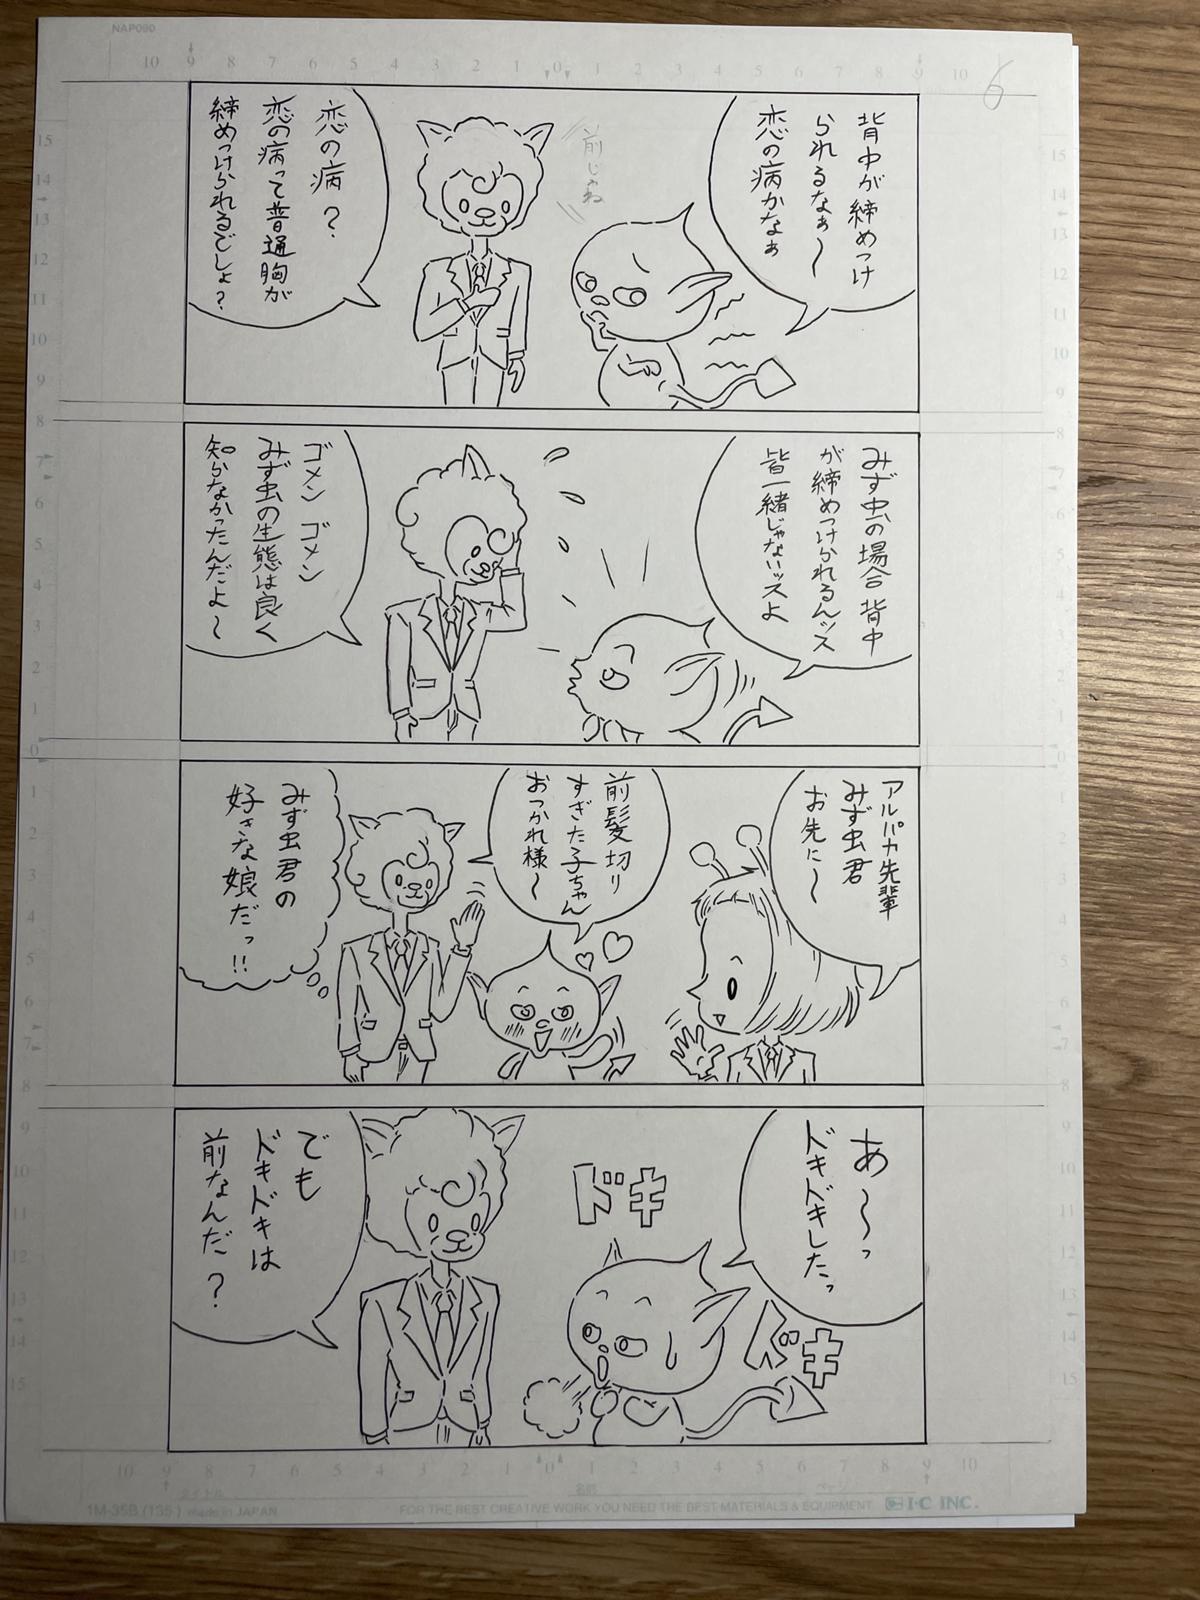 NAP090
6
背中が締めつけ
られるなぁ〜
恋の病かなぁ
前じゃね
恋の病?
恋の病って普通胸が
締めつけられるでしょ?
みず虫の場合 背中
が締めつけられるんッス
皆一緒じゃないッスよ
ゴメン ゴメン
みず虫の生態は良く
知らなかったんだよ〜
アルパカ先輩
みず虫君
お先に〜
前髪切り
すぎた子ちゃん
おつかれ様〜
みず虫君の
好きな娘だっ!!
あ〜〜っ
ドキドキしたっ
ドキ
ドキ
でも
ドキドキは
前なんだ?
タイトル
名前
ページ
1M-35B (135) made in JAPAN
FOR THE BEST CREATIVE WORK YOU NEED THE BEST MATERIALS & EQUIPMENT
I・C INC.